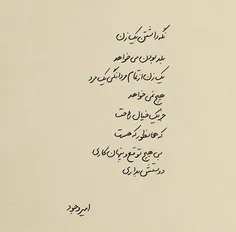 نگه داشتن یک زن
بلد بودن می خواهد
یک زن از تمام مردانگی یک مرد
هیچ نمی خواهد
جز یک خیال راحت
که همانطور که هست
بی هیچ توقع و پنهان کاری
دوستش بداری
امیر وجود